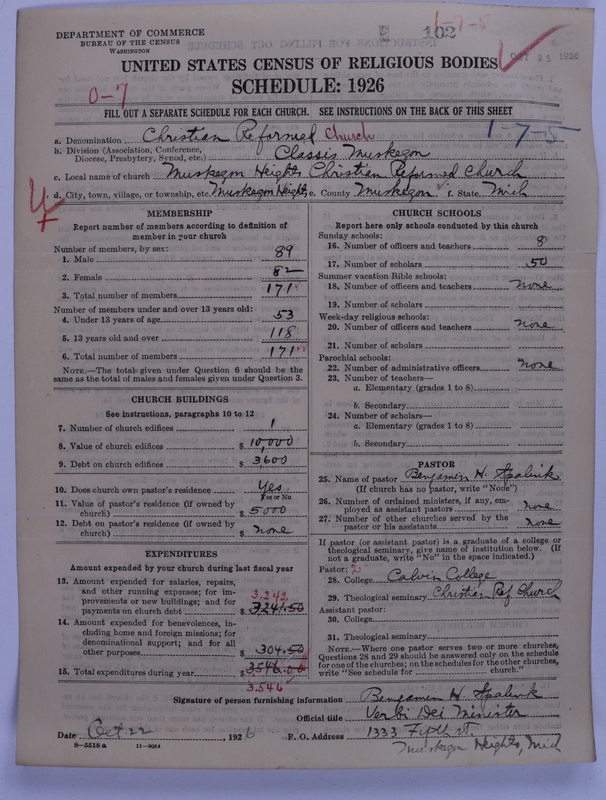 1-1-5
DEPARTMENT OF COMMERCE
BUREAU OF THE CENSUS
WASHINGTON
102
OCT 25 1926
UNITED STATES CENSUS OF RELIGIOUS BODIES
SCHEDULE: 1926
0-7
FILL OUT A SEPARATE SCHEDULE FOR EACH CHURCH. SEE INSTRUCTIONS ON THE BACK OF THIS SHEET
1-7-5
a. Denomination Christian Reformed Church
b. Division (Association, Conference, Diocese, Presbytery, Synod, etc.) Classis Muskegon
c. Local name of church Muskegon Heights Christian Reformed Church
d. City, town, village, or township, etc. Muskegon Heights e. County Muskegon f. State Mich
4
MEMBERSHIP
Report number of members according to definition of
member in your church
Number of members, by sex:
1. Male 89
2. Female 82
3. Total number of members 171
Number of members under and over 13 years old:
4. Under 13 years of age 53
5. 13 years old and over 118
6. Total number of members 171
NOTE.—The total given under Question 6 should be
same as the total of males and females given under Question 3.
CHURCH BUILDINGS
See instructions, paragraphs 10 to 12
7. Number of church edifices 1
8. Value of church edifices $ 10,000
9. Debt on church edifices $ 3600
10. Does church own pastor's residence Yes
Yes or No
11. Value of pastor's residence (if owned by
church) $ 5000
12. Debt on pastor's residence (if owned by
church) $ none
EXPENDITURES
Amount expended by your church during last fiscal year
13. Amount expended for salaries, repairs,
and other running expenses; for im-
provements or new buildings; and for 3,242
payments on church debt $ 3241.50
14. Amount expended for benevolences, in-
cluding home and foreign missions; for
denominational support; and for all
other purposes $ 304.50
15. Total expenditures during year $ 3546.00
3,546
CHURCH SCHOOLS
Report here only schools conducted by this church
Sunday schools:
16. Number of officers and teachers 8
17. Number of scholars 50
Summer vacation Bible schools:
18. Number of officers and teachers none
19. Number of scholars
Week-day religious schools:
20. Number of officers and teachers none
21. Number of scholars
Parochial schools:
22. Number of administrative officers none
23. Number of teachers—
a. Elementary (grades 1 to 8)
b. Secondary
24. Number of scholars—
a. Elementary (grades 1 to 8)
b. Secondary
PASTOR
25. Name of pastor Benjamin H. Spalink
(If church has no pastor, write "None")
26. Number of ordained ministers, if any, em-
ployed as assistant pastors none
27. Number of other churches served by the
pastor or his assistants none
If pastor (or assistant pastor) is a graduate of a college or
theological seminary, give name of institution below. (If
not a graduate, write "No" in the space indicated.)
Pastor: 2
28. College Calvin College
29. Theological seminary Christian Ref Church
Assistant pastor:
30. College
31. Theological seminary
NOTE.—Where one pastor serves two or more churches,
Questions 28 and 29 should be answered only on the schedule
for one of the churches; on the schedules for the other churches,
write "See schedule for church."
Signature of person furnishing information Benjamin H Spalink
Official title Verbi Dei Minister
Date Oct 22, 1926 P. O. Address 1333 Fifth st.
Muskegon Heights, Mich
8-5518a 11-9054